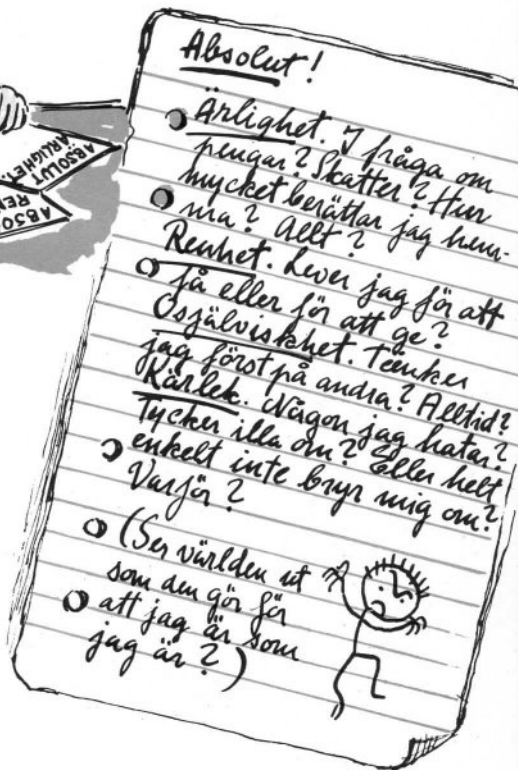 Absolut!
Ärlighet. I fråga om
pengar? Skatter? Hur
mycket berättar jag hem-
ma? Allt?
Renhet. Lever jag för att
få eller för att ge?
Osjälviskhet. Tänker
jag först på andra? Alltid?
Kärlek. Någon jag hatar?
Tycker illa om? Eller helt
enkelt inte bryr mig om?
Varför?
(Ser världen ut
som den gör för
att jag är som
jag är?)
ABSOLUT
ÄRLIGHET
ABSO
REN